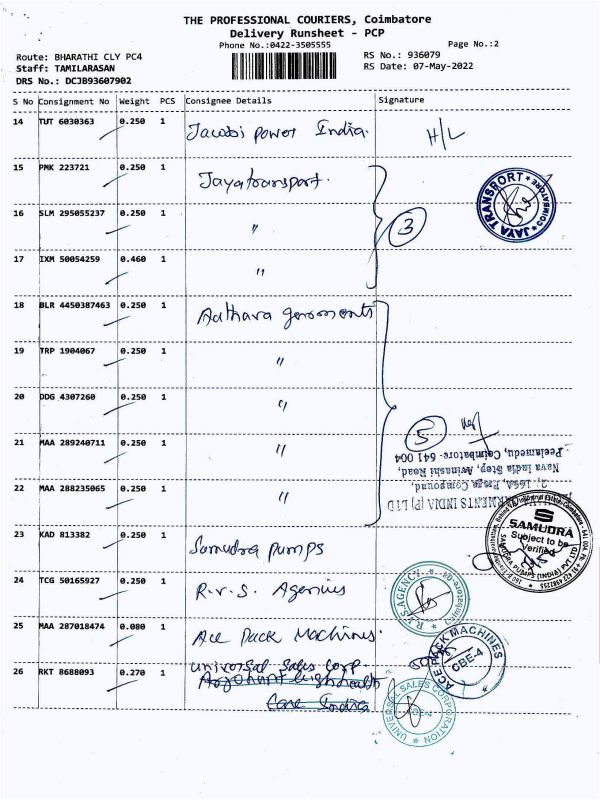 THE PROFESSIONAL COURIERS, Coimbatore
Delivery Runsheet - PCP
Phone No.:0422-3505555
Page No.:2
Route: BHARATHI CLY PC4
RS No.: 936079
Staff: TAMILARASAN
RS Date: 07-May-2022
DRS No.: DCJB93607902
S No Consignment No Weight PCS Consignee Details Signature
14 TUT 6030363 0.250 1 Jacobi power India. H/L
15 PMK 223721 0.250 1 Jayatransport.
JAYA TRANSPORT * COIMBATORE *
16 SLM 295055237 0.250 1 〃 3
17 IXM 50054259 0.460 1 〃
18 BLR 4450387463 0.250 1 Aathava garments
19 TRP 1904067 0.250 1 〃
20 DDG 4307260 0.250 1 〃
5
21 MAA 289240711 0.250 1 〃
Peelamedu, Coimbatore - 641 004
Nava India Stop, Avinashi Road,
22 MAA 288235065 0.250 1 〃
Compound,
GARMENTS INDIA (P) LTD
23 KAD 813382 0.250 1 Samudra pumps
SAMUDRA
Subject to be
Verified
SAMUDRA PUMPS (INDIA) PVT LTD
24 TCG 50165927 0.250 1 R.V.S. Agencies
AGENCY
Coimbatore
25 MAA 287018474 0.080 1 Ace Pack Machines.
ACE PACK MACHINES
CBE-4
26 RKT 8688093 0.270 1 Universal Sales Corp.
Care India
UNIVERSAL SALES CORPORATION
CBE-4